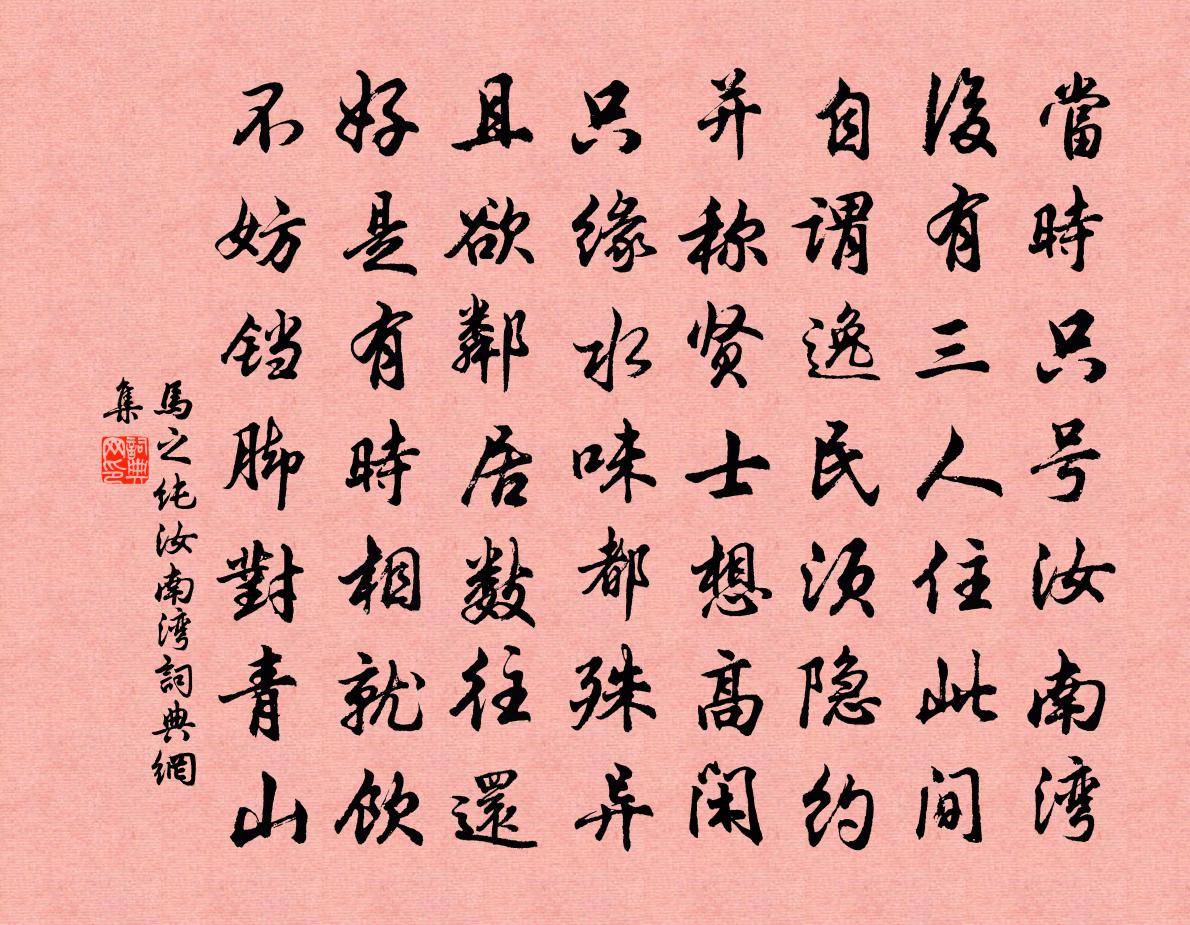 當時只号汝南湾
後有三人住此间
自谓逸民须隐约
并称贤士想高闲
只缘水味都殊异
且欲鄰居数往還
好是有時相就飲
不妨铛脚對青山
馬之純汝南湾詞典網
集
詞典網印